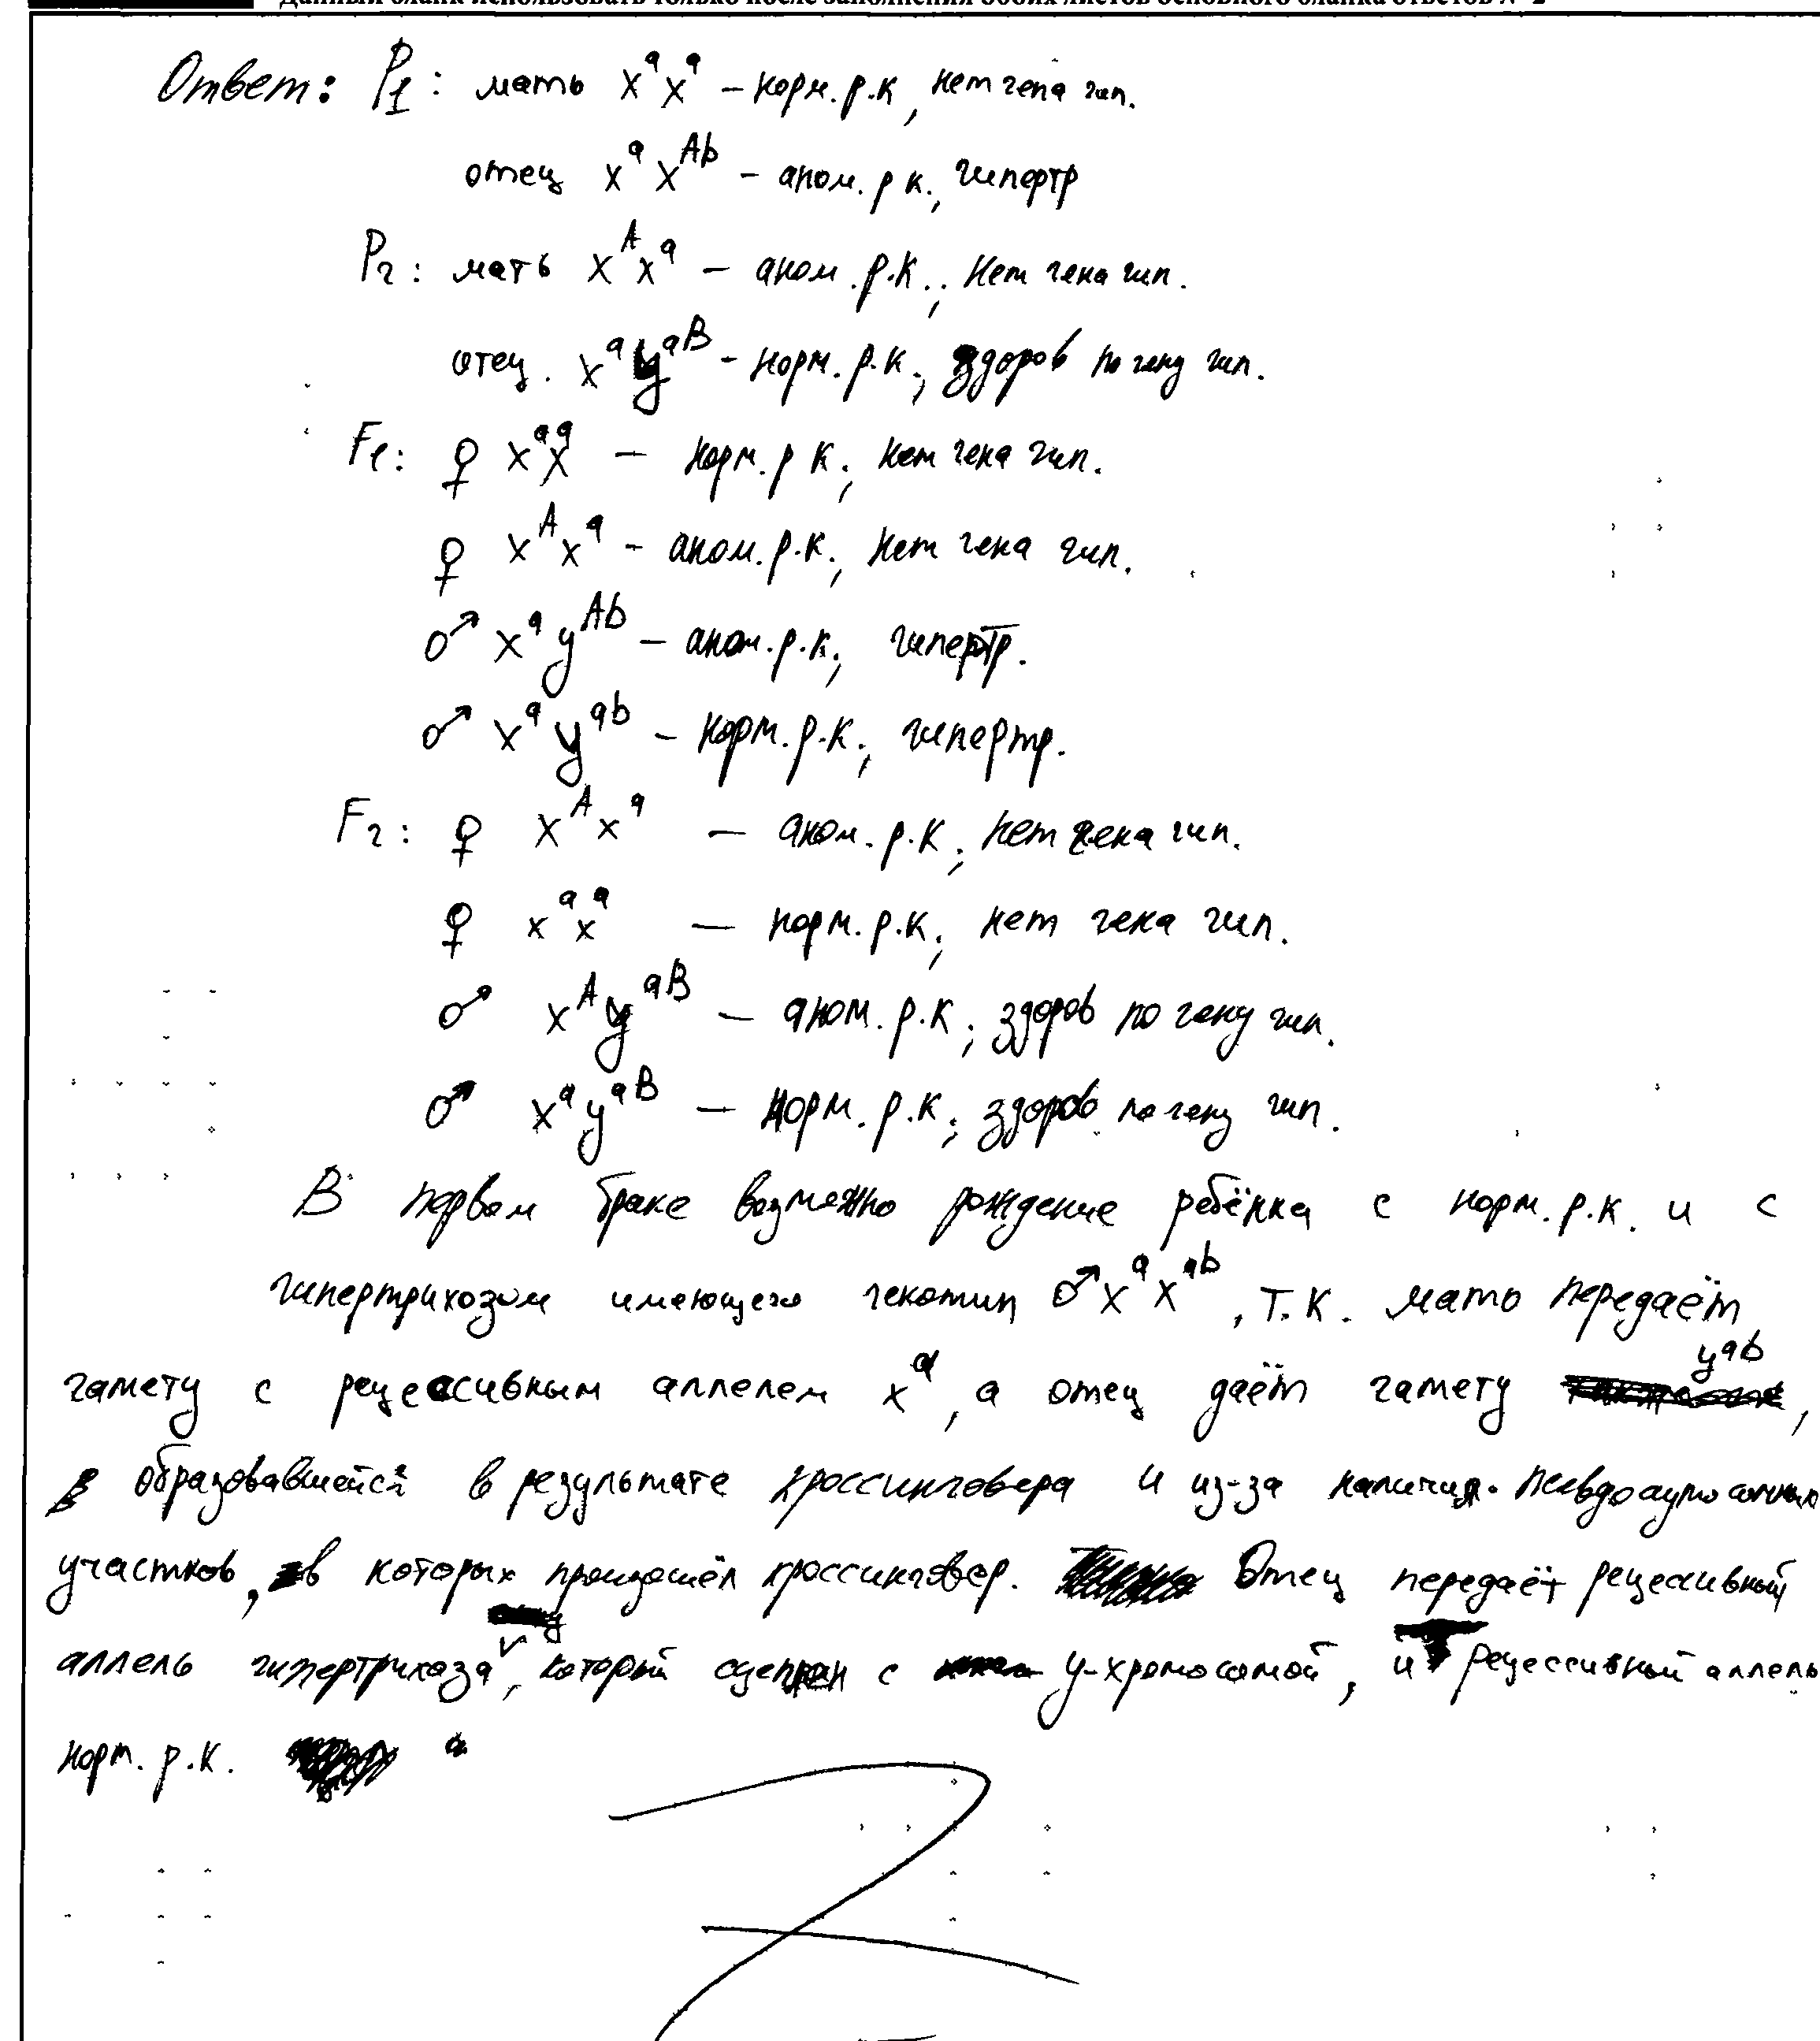 Данный бланк использовать только после заполнения обоих листов основного бланка ответов № 2
Ответ: P₁: мать XᵃXᵃ – норм. р.к, нет гена гип.
отец XᵃXᴬᵇ – аном. р к.; гипертр
P₂: мать XᴬXᵃ – аном. р.к.; Нет гена гип.
отец. XᵃYᵃᴮ – норм. р.к.; здоров по гену гип.
F₁: ♀ XᵃXᵃ – норм. р к.; нет гена гип.
♀ XᴬXᵃ – аном. р.к.; нет гена гип.
♂ XᵃYᴬᵇ – аном. р.к.; гипертр.
♂ XᵃYᵃᵇ – норм. р.к.; гипертр.
F₂: ♀ XᴬXᵃ – аном. р.к.; нет гена гип.
♀ XᵃXᵃ – норм. р.к.; нет гена гип.
♂ XᴬYᵃᴮ – аном. р.к.; здоров по гену гип.
♂ XᵃYᵃᴮ – норм. р.к.; здоров по гену гип.
В первом браке возможно рождение ребёнка с норм. р.к. и с
гипертрихозом имеющего генотип ♂XᵃXᵃᵇ, т.к. мать передаёт
гамету с рецессивным аллелем Xᵃ, а отец даёт гамету Yᵃᵇ,
образовавшейся в результате кроссинговера и из-за наличия псевдоаутосомных
участков, в которых произошёл кроссинговер. Отец передаёт рецессивный
аллель гипертрихоза, который сцеплен с Y-хромосомой, и рецессивный аллель
норм. р.к. а